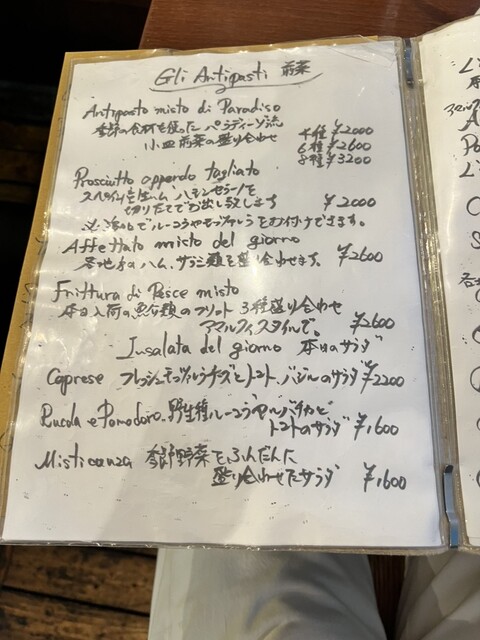 Gli Antipasti 前菜
Antipasto misto di Paradiso
季節の食材を使った パラディーゾ流
小皿前菜の盛り合わせ
4種 ¥2000
6種 ¥2600
8種 ¥3200
Prosciutto apperdo tagliato
スペイン産生ハム ハモンセラーノを
切りたてでお出し致します ¥2000
※添加でルーコラやモッツァレラをお付けできます。
Affettato misto del giorno
各地方のハム、サラミ類を盛り合わせます。 ¥2600
Frittura di Pesce misto
本日入荷の魚介類のフリット 3種盛り合わせ
アマルフィスタイルで。 ¥2600
Insalata del giorno 本日のサラダ
Caprese フレッシュモッツァレラチーズとトマト、バジルのサラダ ¥2200
Rucola e Pomodoro 野生種ルーコラセルバチカと
トマトのサラダ ¥1600
Misticanza 季節野菜をふんだんに
盛り合わせたサラダ ¥1600